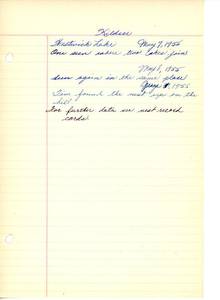 Killdeer
Lake May 7, 1955
One seen where two lakes join
May 8, 1955
seen again in the same place
1955
Tom found the nest eggs on the
hill
For further data see nest record
cards